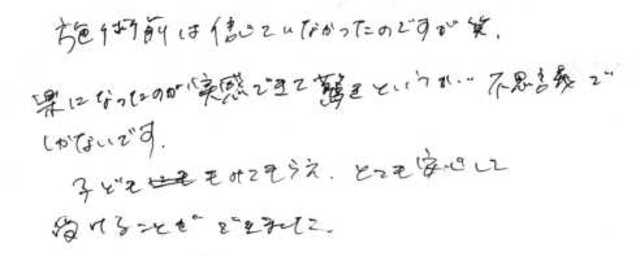 施術前は信じていなかったのですが笑、
楽になったのが実感できて驚きというか… 不思議で
しかないです。
子どももみてもらえ、とても安心して
受けることができました。